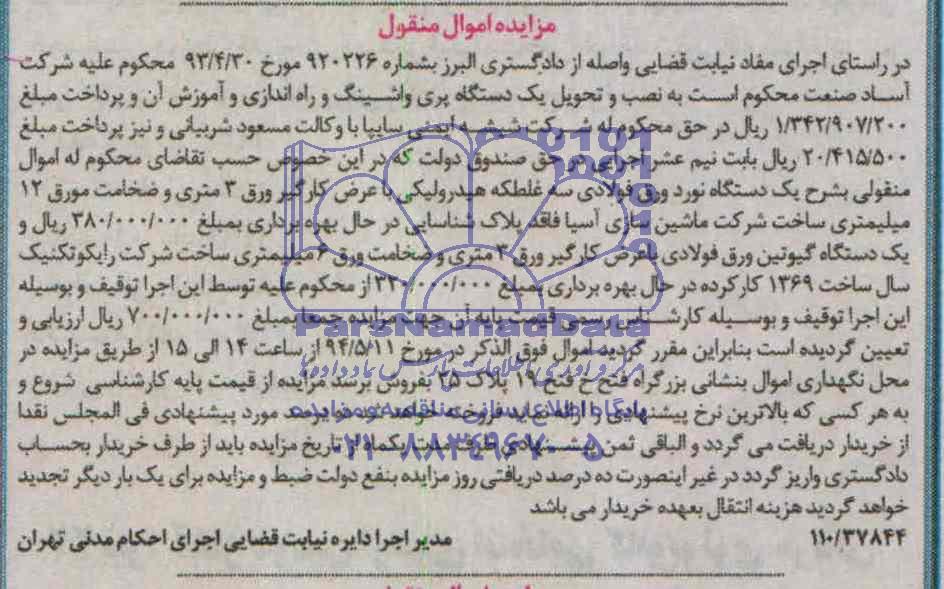 مزایده اموال منقول
در راستای اجرای مفاد نیابت قضایی واصله از دادگستری البرز بشماره ۹۲۰۲۲۶ مورخ ۹۳/۴/۳۰ محکوم علیه شرکت
آساد صنعت محکوم است به نصب و تحویل یک دستگاه پری واشینگ و راه اندازی و آموزش آن و پرداخت مبلغ
۱/۳۴۲/۹۰۷/۲۰۰ ریال در حق محکوم له شرکت شیشه ایمنی سایپا با وکالت مسعود شربیانی و نیز پرداخت مبلغ
۲۰/۴۱۵/۵۰۰ ریال بابت نیم عشر اجرایی در حق صندوق دولت که در این خصوص حسب تقاضای محکوم له اموال
منقولی بشرح یک دستگاه نورد ورق فولادی سه غلطکه هیدرولیکی با عرض کارگیر ورق ۳ متری و ضخامت مورق ۱۲
میلیمتری ساخت شرکت ماشین سازی آسیا فاقد پلاک شناسایی در حال بهره برداری بمبلغ ۳۸۰/۰۰۰/۰۰۰ ریال و
یک دستگاه گیوتین ورق فولادی باعرض کارگیر ورق ۳ متری و ضخامت ورق ۶ میلیمتری ساخت شرکت رایکوتکنیک
سال ساخت ۱۳۶۹ کارکرده در حال بهره برداری بمبلغ ۳۲۰/۰۰۰/۰۰۰ از محکوم علیه توسط این اجرا توقیف و بوسیله
این اجرا توقیف و بوسیله کارشناس رسمی قیمت پایه آن جهت مزایده جمعا بمبلغ ۷۰۰/۰۰۰/۰۰۰ ریال ارزیابی و
تعیین گردیده است بنابراین مقرر گردید اموال فوق الذکر در مورخ ۹۴/۵/۱۱ از ساعت ۱۴ الی ۱۵ از طریق مزایده در
محل نگهداری اموال بنشانی بزرگراه فتح خ فتح ۱۹ پلاک ۲۵ بفروش برسد مزایده از قیمت پایه کارشناسی شروع و
به هر کسی که بالاترین نرخ پیشنهادی را ارائه نماید فروخته خواهد شد ده درصد مورد پیشنهادی فی المجلس نقدا
از خریدار دریافت می گردد و الباقی ثمن پیشنهادی ظرف مدت یکماه از تاریخ مزایده باید از طرف خریدار بحساب
دادگستری واریز گردد در غیر اینصورت ده درصد دریافتی روز مزایده بنفع دولت ضبط و مزایده برای یک بار دیگر تجدید
خواهد گردید هزینه انتقال بعهده خریدار می باشد
۱۱۰/۳۷۸۴۴ مدیر اجرا دایره نیابت قضایی اجرای احکام مدنی تهران
ParsNamadData
پایگاه اطلاع رسانی مناقصه و مزایده
۰۲۱-۸۸۳۴۹۶۷۰-۵